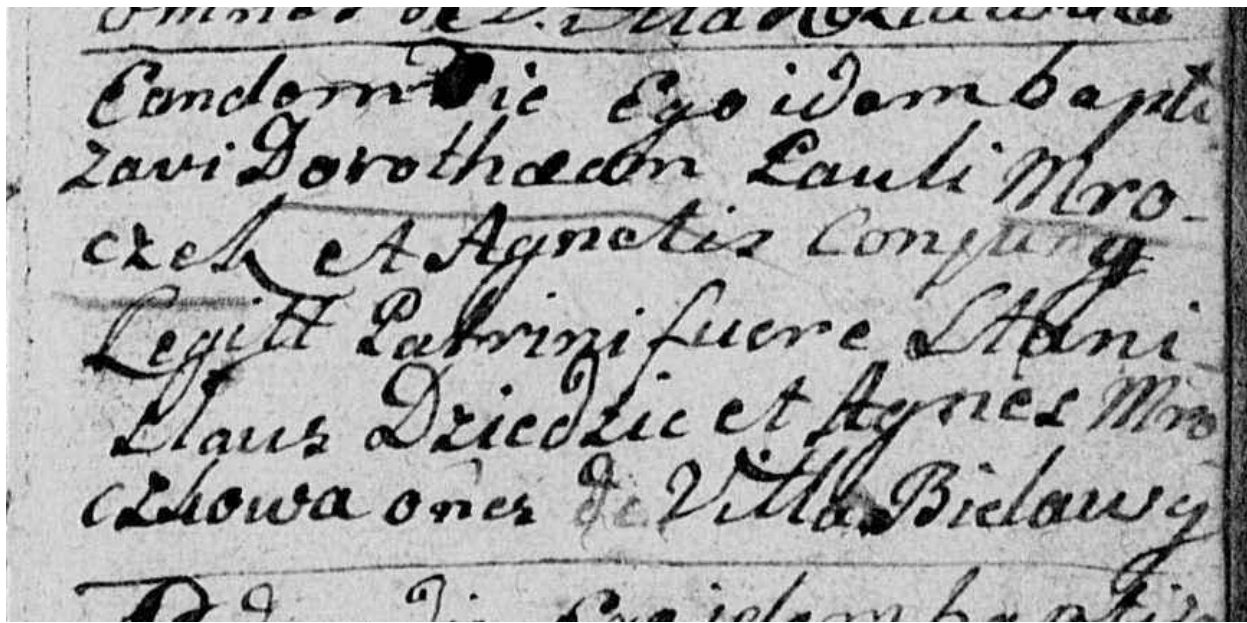 omnes de V. Villa
Eandem Die Ego idem bapti
zavi Dorothæam Pauli Mro-
czek et Agnetis Conjung
Legitt Patrini fuere Stani
slaus Dziedzic et Agnes Mro
czkowa oñes de Villa Bielawy
Die Ego idem baptiza